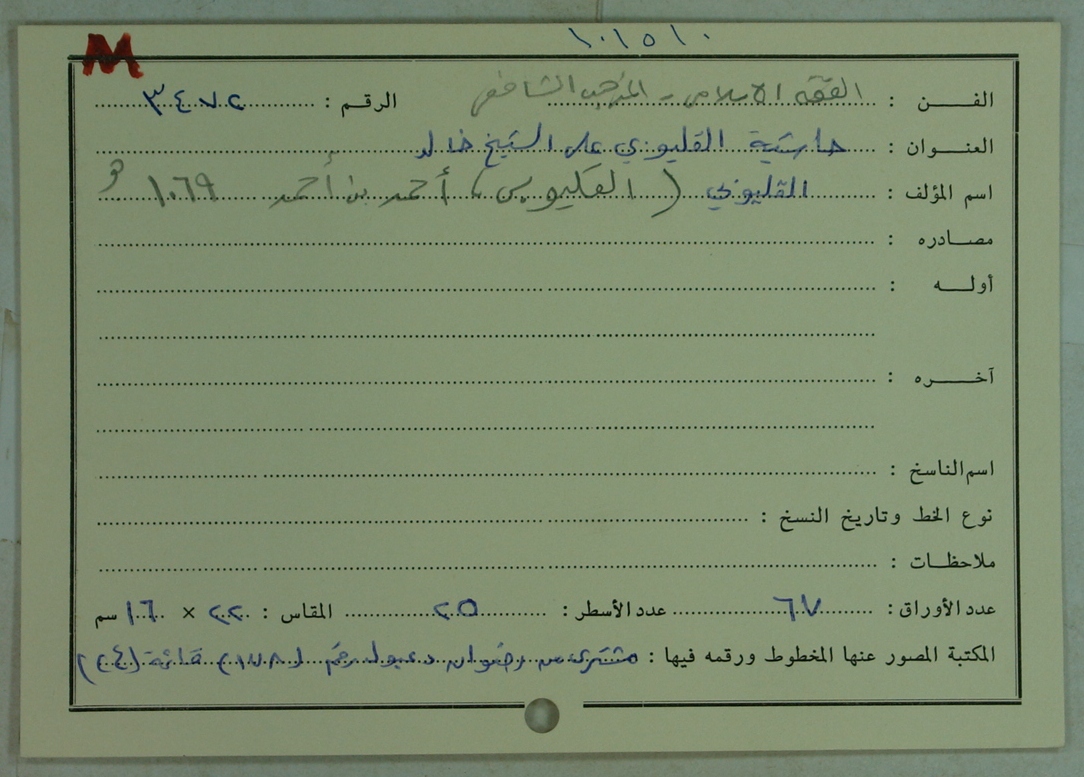 ١٠١٥١٠
M
الفن : الفقه الاسلامى - المذهب الشافعى الرقم : ٣٤٧٢
العنوان : حاشية القليوبي على الشيخ خالد
اسم المؤلف : القليوبي ( القليوبى ، أحمد بن أحمد ١٠٦٩ هـ
مصادره :
أوله :
آخره :
اسم الناسخ :
نوع الخط وتاريخ النسخ :
ملاحظات :
عدد الأوراق : ٦٧ عدد الأسطر : ٢٥ المقاس : ٢٢ × ١٦ سم
المكتبة المصور عنها المخطوط ورقمه فيها : مشترى من رضوان دعبول رقم (١٧٨) قائمة (٢٤)